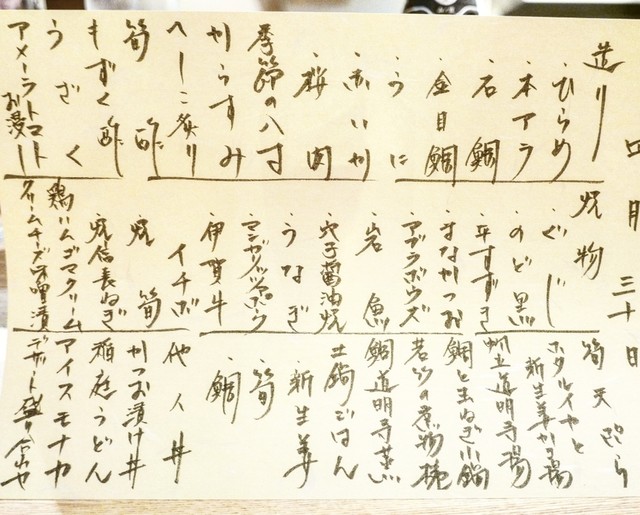 四月三十日
造り
・ひらめ
・本アラ
・石鯛
・金目鯛
・うに
・赤いか
・桜肉
季節の八寸
からすみ
へしこ炙り
筍
酢
もずく酢
うざく
アメーラトマト
お浸し
焼物
・ぐじ
・のど黒
・平すずき
・まながつお
・アブラボウズ
・岩魚
・穴子醤油焼
・うなぎ
・マンガリッツァポーク
・伊賀牛
イチボ
焼筍
焼信長ねぎ
鶏ハムゴマクリーム
クリームチーズ味噌漬
筍天ぷら
ホタルイカと
新生姜かき揚
帆立道明寺揚
鯛と玉ねぎ小鍋
若竹の煮物椀
鯛道明寺蒸
土鍋ごはん
・新生姜
・筍
・鯛
他人丼
かつお漬け丼
稲庭うどん
アイスモナカ
デザート盛り合わせ